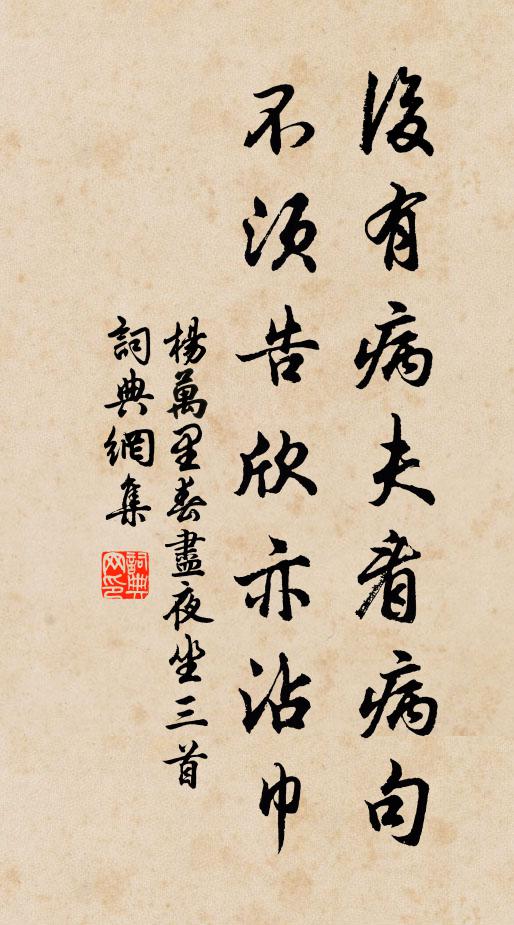 後有病夫看病句
不須告欣亦沾巾
楊萬里春盡夜坐三首
詞典網集
詞典網印